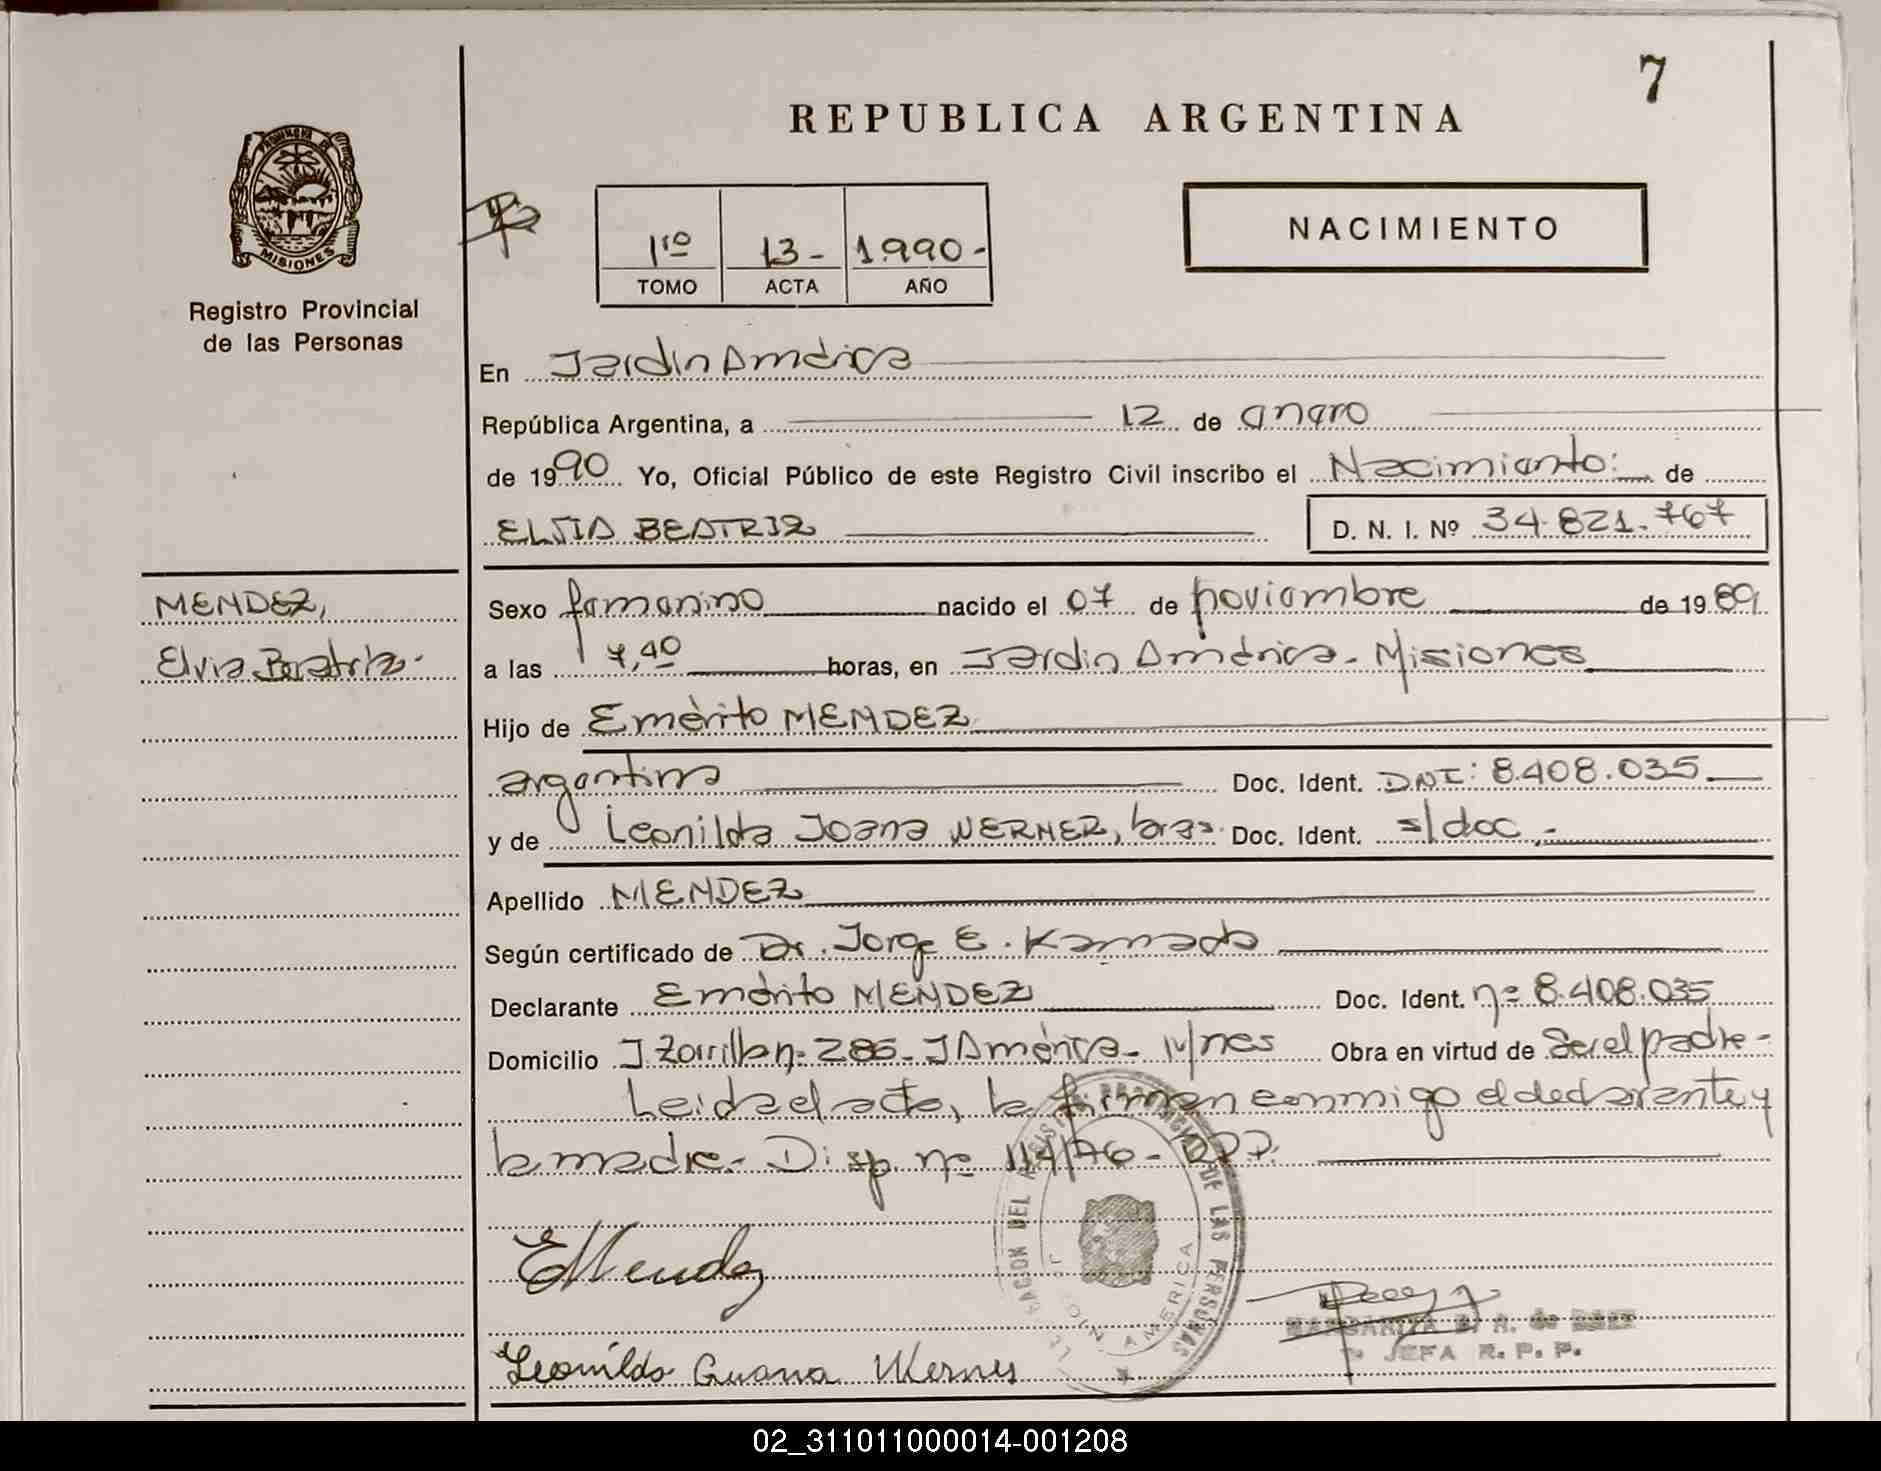 7
REPUBLICA ARGENTINA
PROVINCIA DE
MISIONES
Registro Provincial
de las Personas
1ro 13- 1990-
TOMO ACTA AÑO
NACIMIENTO
En Jardín América
República Argentina, a 12 de enero
de 1990 Yo, Oficial Público de este Registro Civil inscribo el Nacimiento: de
ELVIA BEATRIZ D. N. I. Nº 34.821.767
MENDEZ,
Elvia Beatriz-
Sexo femenino nacido el 07 de noviembre de 1989
a las 7,40 horas, en Jardín América- Misiones
Hijo de Emérito MENDEZ
argentina Doc. Ident. DNI: 8.408.035
y de Leonilda Joana WERNER, bras. Doc. Ident. s/doc.-
Apellido MENDEZ
Según certificado de Dr. Jorge E. Kamada
Declarante Emérito MENDEZ Doc. Ident. nº 8.408.035
Domicilio J. Zorrilla nº 286- J América- M/nes Obra en virtud de Ser el padre-
Leida el acta, la firman conmigo el declarante y
la madre.- Disp. nº 114/76- RPP.
DELEGACION DEL REGISTRO PROVINCIAL DE LAS PERSONAS
JARDIN AMERICA
EMendez
MARGARITA R. de BAEZ
JEFA R. P. P.
Leonilda Guana Werner
02_311011000014-001208